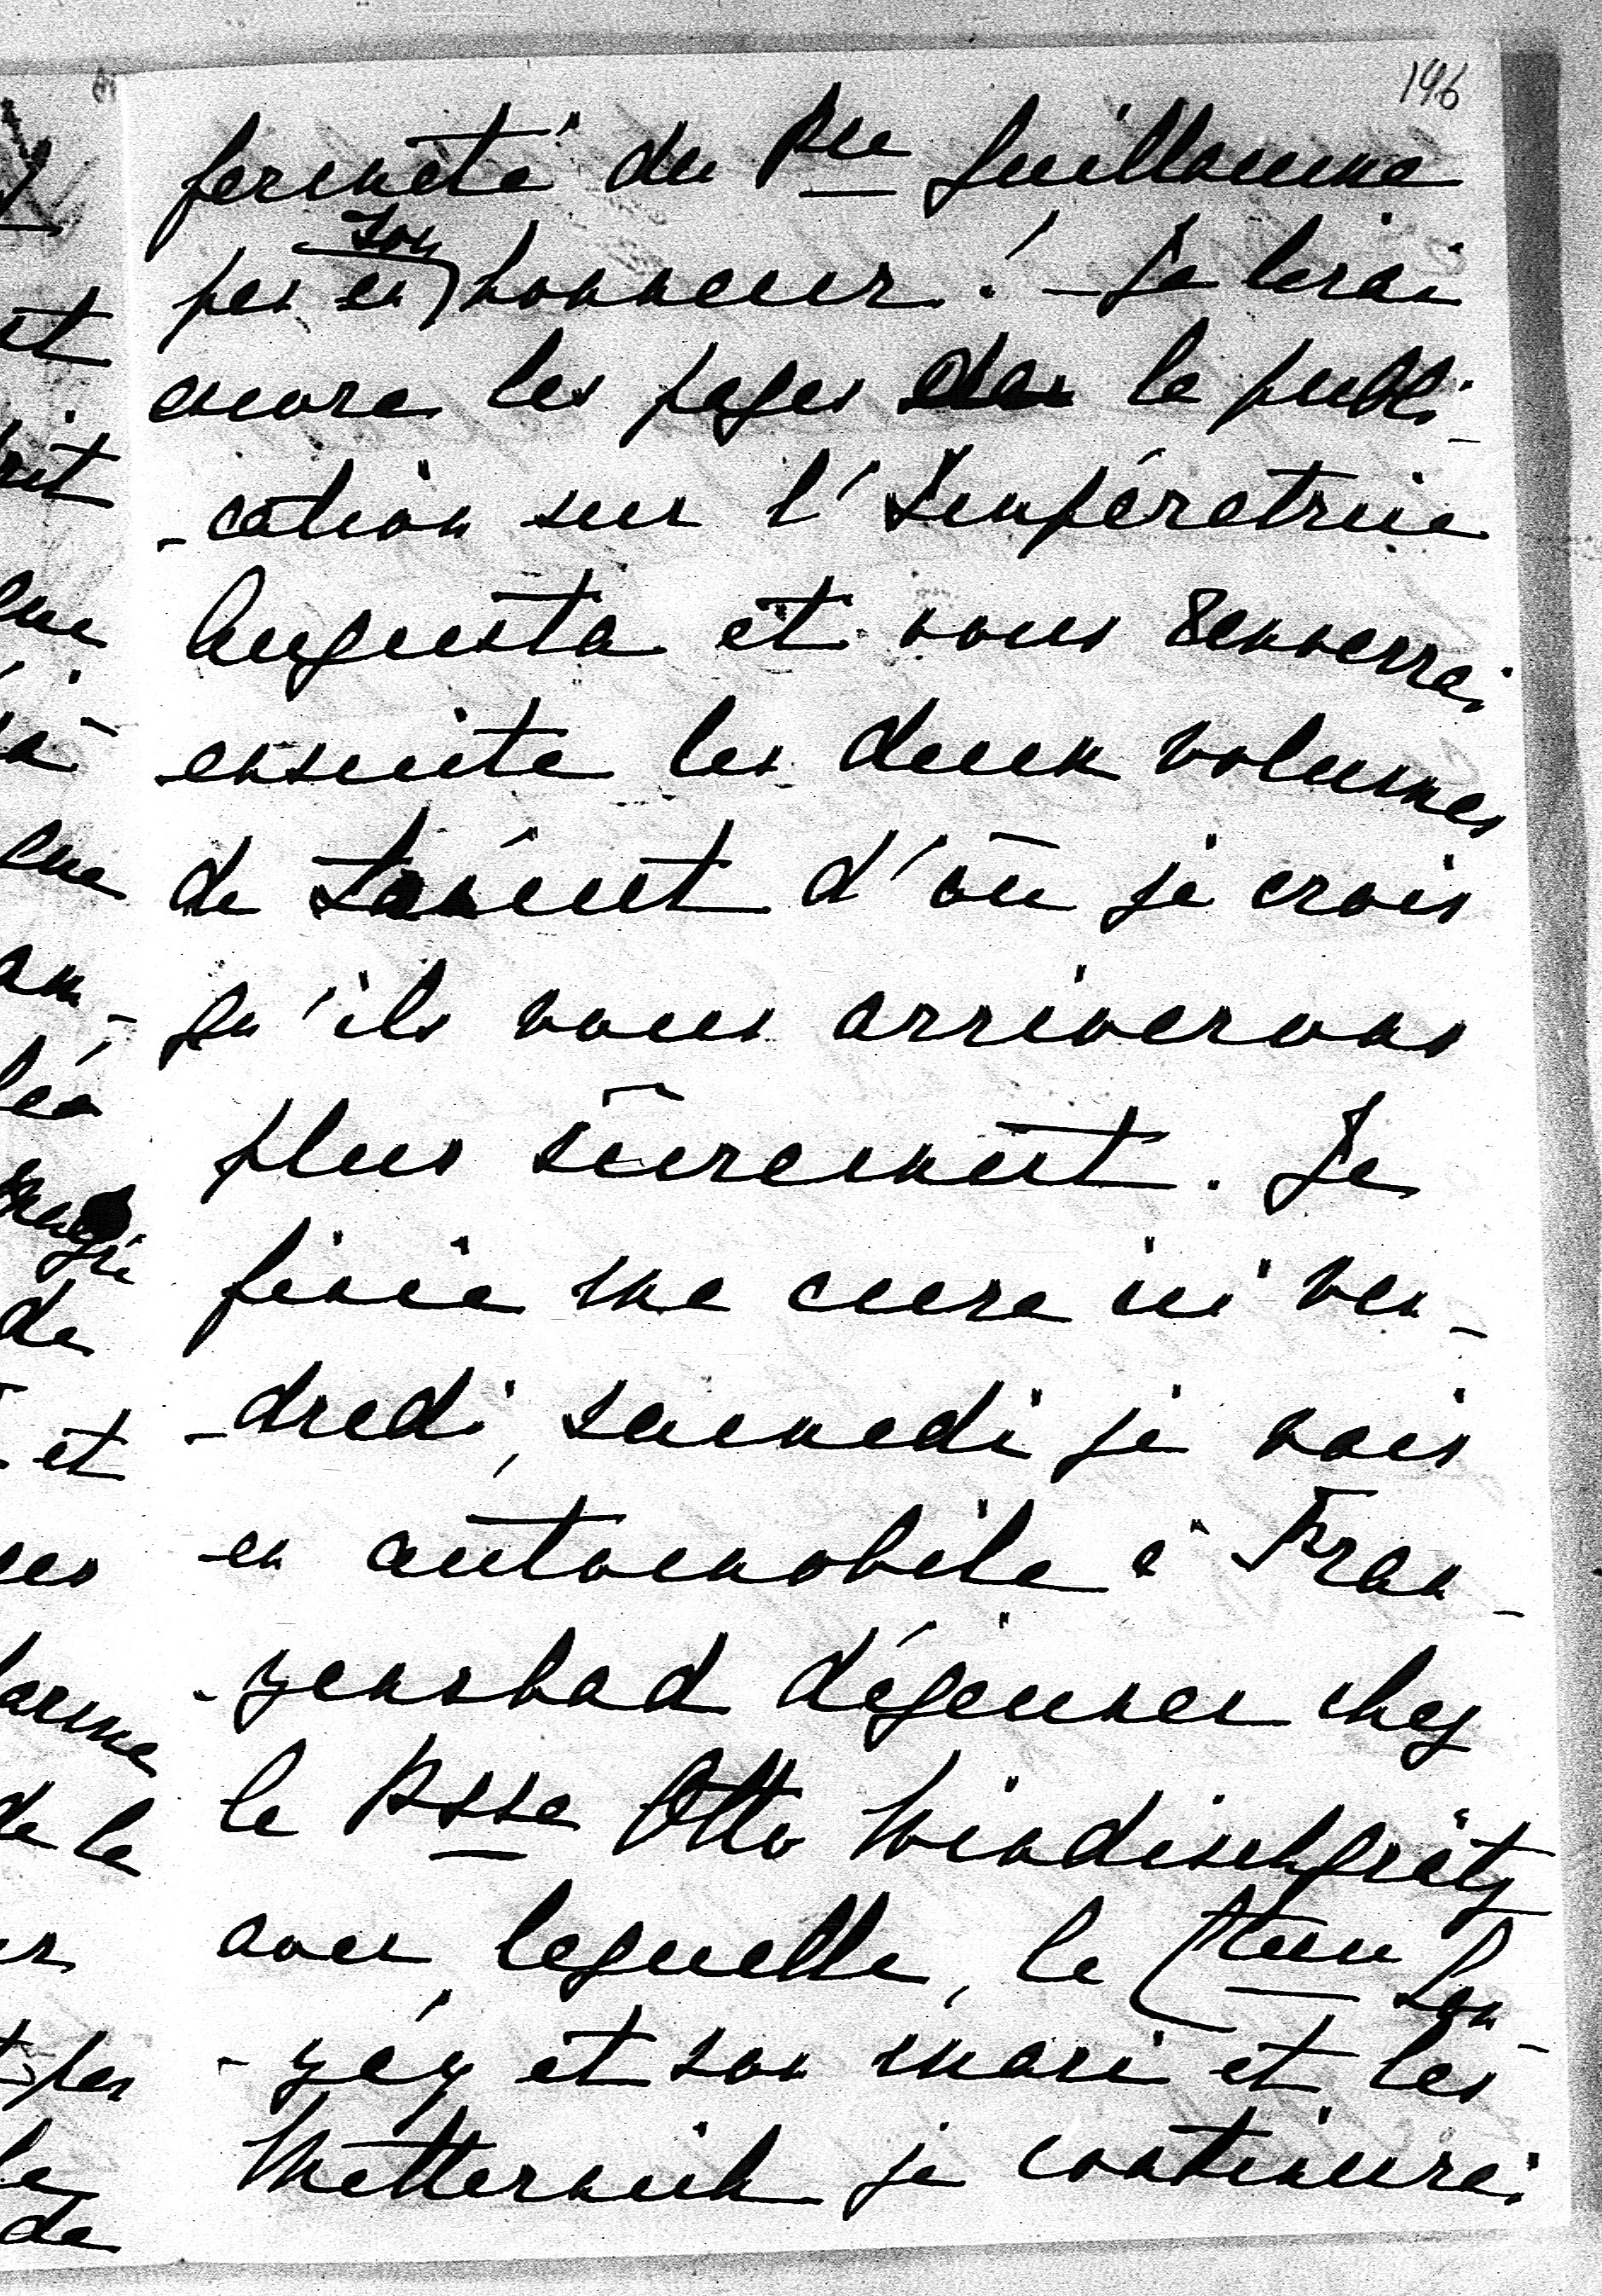 196
fermeté du Pce Guillaume
son
pas en honneur! - Je lirai
encore les pages de la publi-
-cation sur l'Impératrice
Augusta et vous renverrai
ensuite les deux volumes
de d'où je crois
qu'ils vous arriverons
plus sûrement. Je
finie ma cure ici ven-
-dredi, samedi je vais
en automobile à Fran-
-zensbad déjeuner chez
la Psse Otto Windischgrätz
avec laquelle, la Ctesse Lon-
-yay et son mari et les
Metternich je continurai